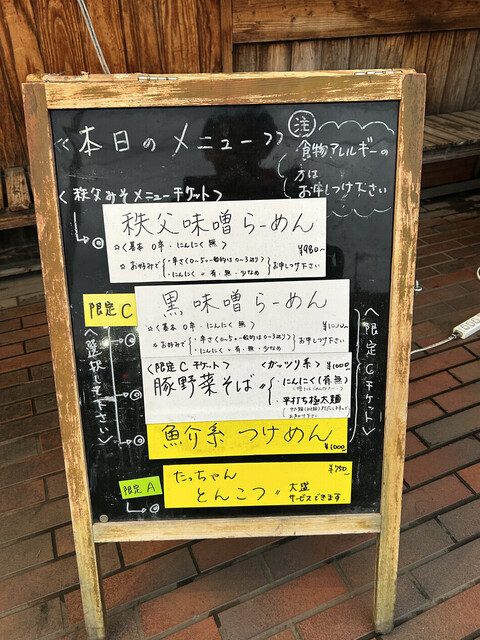 <本日のメニュー>
注
食物アレルギーの
方は
お申しつけ下さい
<秩父みそメニューチケット>
秩父味噌らーめん
☆<基本 0辛・にんにく無> ¥980-
☆お好みで ・辛さ0~5(一般的は0~3辺り) お申しつけ下さい
・にんにく=有・無・少なめ
限定C
黒味噌らーめん
☆<基本 0辛・にんにく無> ¥1000-
☆お好みで ・辛さ0~5(一般的は0~3辺り) お申しつけ下さい
・にんにく=有・無・少なめ
<限定Cチケット> <ガッツリ系> ¥1000
豚野菜そば〃 ・にんにく(有・無)
・平打ち極太麺
魚介系 つけめん
¥1000
<選択して下さい>
<限定Cチケット>
限定A
たっちゃん ¥780-
とんこつ〃 大盛
サービスできます